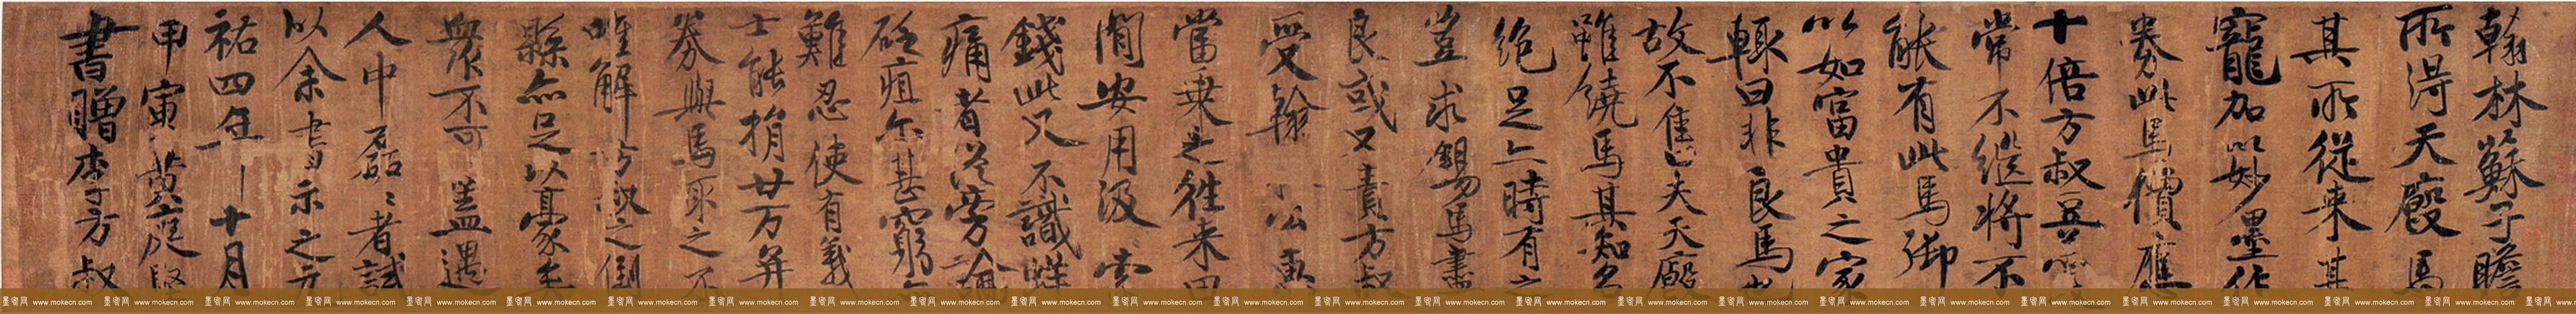 翰林蘇子瞻
所得天廄馬
其所從來甚
寵加以妙墨作
券此馬價應
十倍方叔豆羹
常不繼將不
能有此馬御
以如富貴之家
輒曰非良馬也
故不售夫天廄
雖饒馬其知名
絕足亦時有之
豈求錫馬盡
良或又責方叔
受翰林公惠
當乘之往來田
間安用汲索
錢此又不識蛘
痛者從旁論
砭疽爾甚窮亦
難忍使有義
士能捐廿万并
券與馬取之不
唯解方叔之倒
縣亦足以豪
眾不可蓋遇
人中磊磊者試
以余書示之元
祐四年十月
甲寅黃庭堅
書贈李方叔
墨宮网 www.mokecn.com